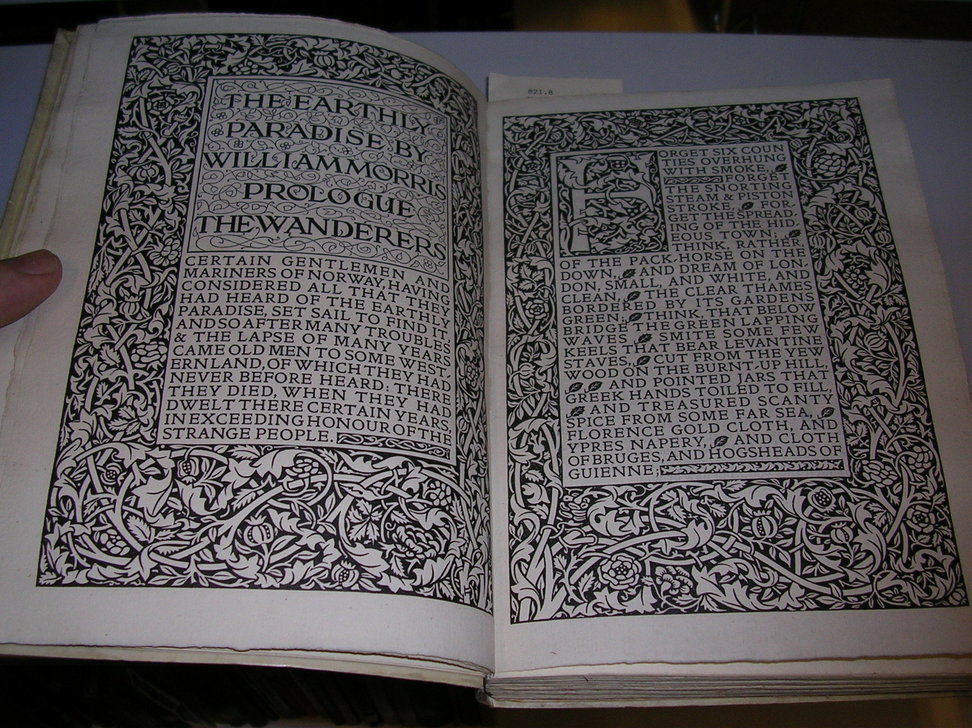 THE EARTHLY
PARADISE BY
WILLIAM MORRIS
PROLOGUE
THE WANDERERS
CERTAIN GENTLEMEN AND
MARINERS OF NORWAY, HAVING
CONSIDERED ALL THAT THEY
HAD HEARD OF THE EARTHLY
PARADISE, SET SAIL TO FIND IT,
AND SO AFTER MANY TROUBLES
& THE LAPSE OF MANY YEARS
CAME OLD MEN TO SOME WEST-
ERN LAND, OF WHICH THEY HAD
NEVER BEFORE HEARD: THERE
THEY DIED, WHEN THEY HAD
DWELT THERE CERTAIN YEARS,
IN EXCEEDING HONOUR OF THE
STRANGE PEOPLE.
821.8
FORGET SIX COUN
TIES OVERHUNG
WITH SMOKE,
FORGET
THE SNORTING
STEAM & PISTON
STROKE, FOR-
GET THE SPREAD-
ING OF THE HID
EOUS TOWN;
THINK, RATHER,
OF THE PACK-HORSE ON THE
DOWN, AND DREAM OF LON-
DON, SMALL, AND WHITE, AND
CLEAN, THE CLEAR THAMES
BORDERED BY ITS GARDENS
GREEN; THINK, THAT BELOW
BRIDGE THE GREEN LAPPING
WAVES SMITE SOME FEW
KEELS THAT BEAR LEVANTINE
STAVES, CUT FROM THE YEW
WOOD ON THE BURNT-UP HILL,
AND POINTED JARS THAT
GREEK HANDS TOILED TO FILL,
AND TREASURED SCANTY
SPICE FROM SOME FAR SEA,
FLORENCE GOLD CLOTH, AND
YPRES NAPERY, AND CLOTH
OF BRUGES, AND HOGSHEADS OF
GUIENNE;